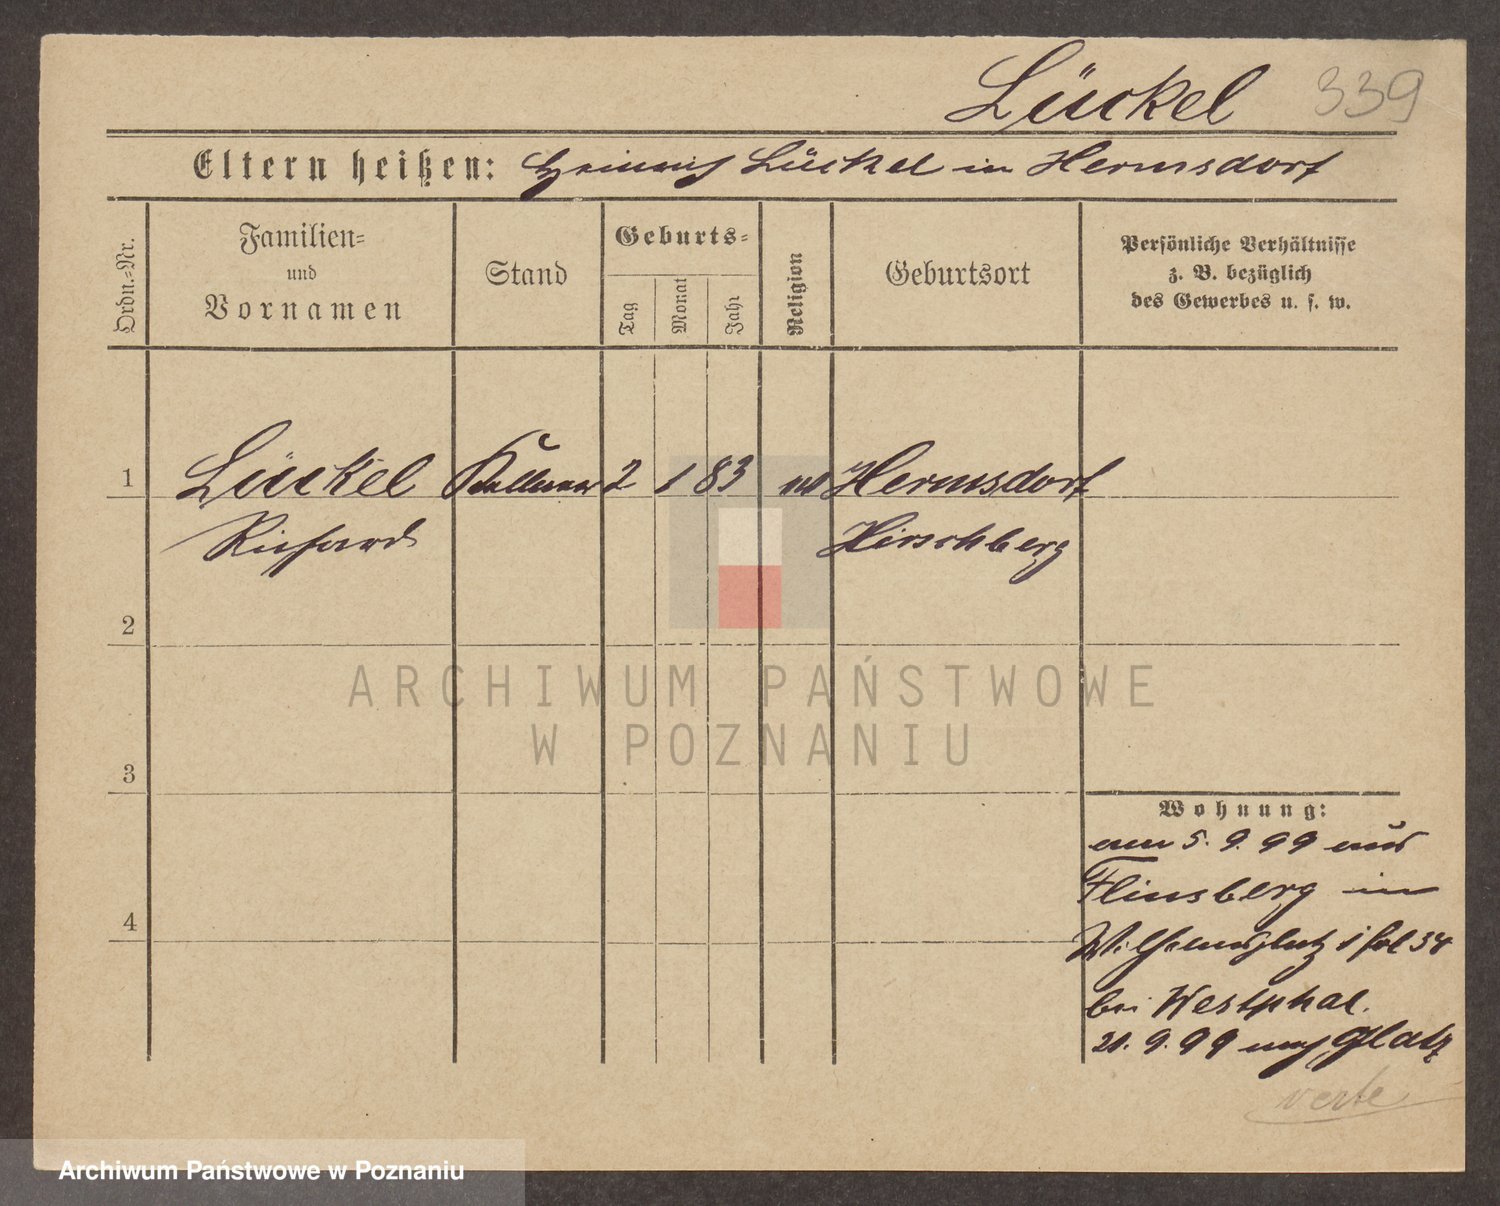 Lückel 339
Eltern heißen: Heinrich Lückel in Hermsdorf
Ordn.=Nr.
Familien=
und
Vornamen
Stand
Geburts=
Tag
Monat
Jahr
Religion
Geburtsort
Persönliche Verhältnisse
z. B. bezüglich
des Gewerbes u. s. w.
1 Lückel Kellner 2 1 83 Hermsdorf
Richard Hirschberg
2
3
4
Wohnung:
am 5. 9. 99 aus
Flinsberg in
Wilhelmsplatz 1 fol 34
bei Westphal.
21. 9. 99 nach Glatz
verte
ARCHIWUM PAŃSTWOWE
W POZNANIU
Archiwum Państwowe w Poznaniu